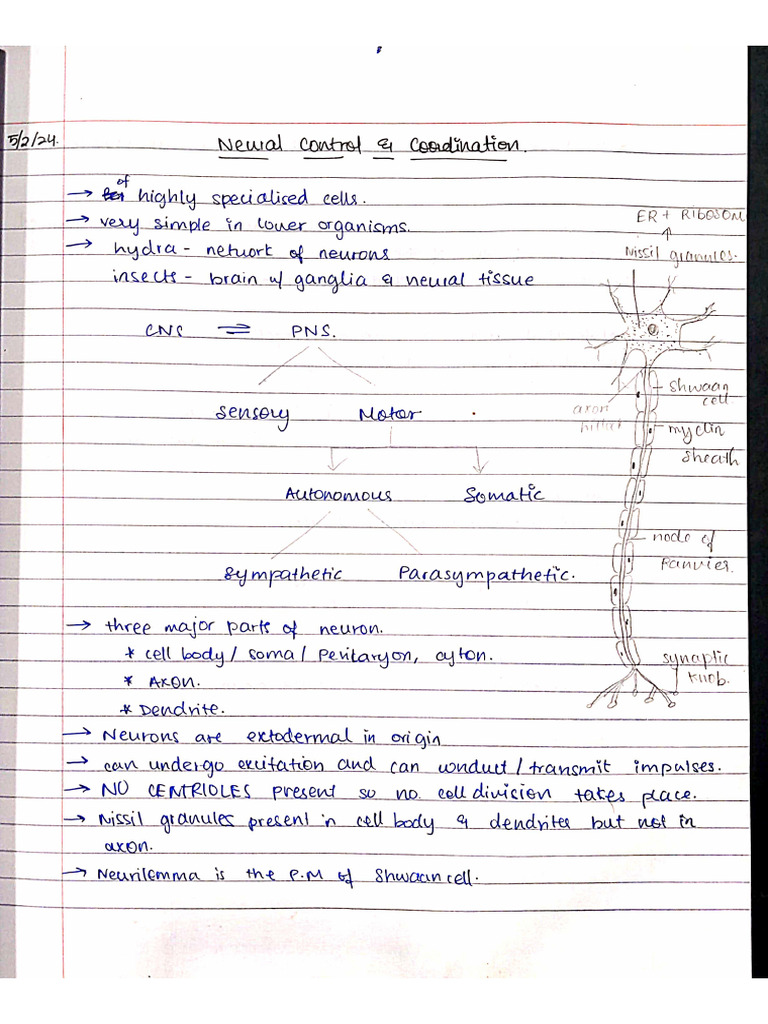 5/2/24.
Neural Control & Coordination.
→ of highly specialised cells.
→ very simple in lower organisms.
→ hydra - network of neurons
insects - brain w/ ganglia & neural tissue
ER + RIBOSOM
Nissil granules.
CNS ⇌ PNS.
Sensory Motor
Shwaan
cell
axon
hillat
myelin
sheath
Autonomous Somatic
node of
Ranvier.
Sympathetic Parasympathetic.
→ three major parts of neuron.
* cell body / soma / Perikaryon, cyton.
* Axon.
* Dendrite.
synaptic
knob.
→ Neurons are ectodermal in origin
→ can undergo excitation and can conduct / transmit impulses.
→ NO CENTRIOLES present so no cell division takes place.
→ Nissil granules present in cell body & dendrites but not in
axon.
→ Neurilemma is the P.M of Shwaan cell.